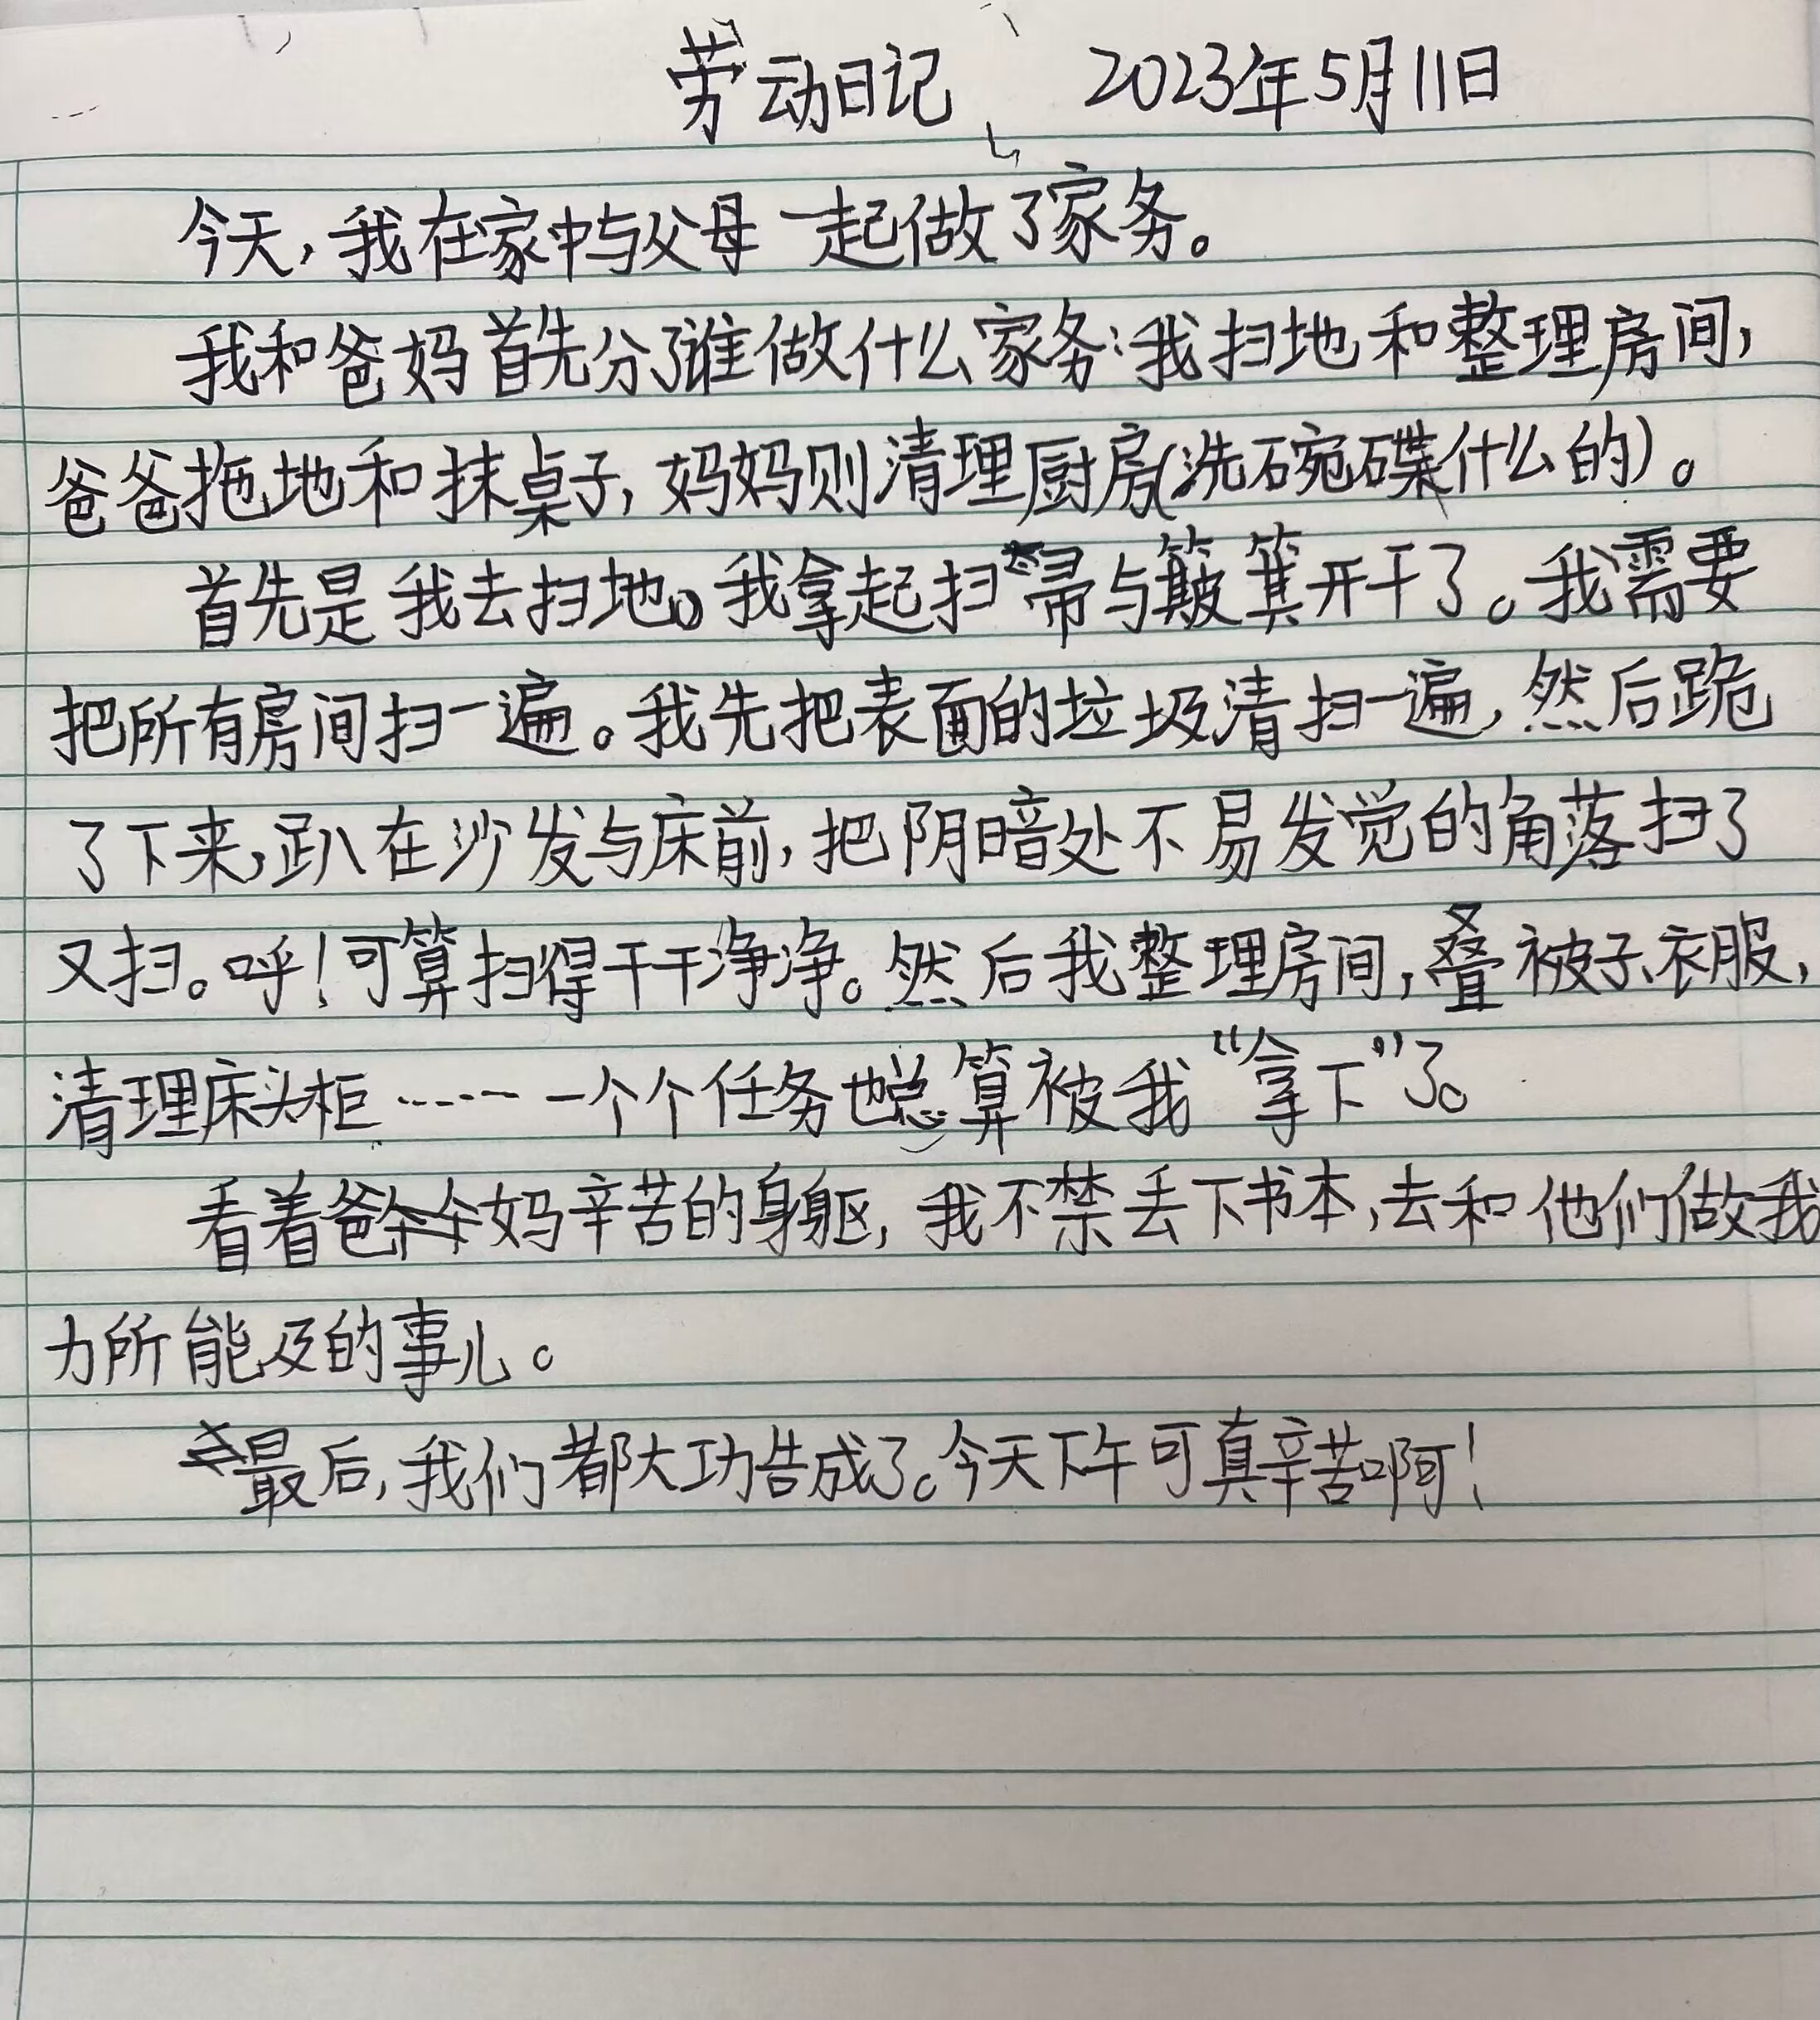 劳动日记 2023年5月11日
今天,我在家中与父母一起做了家务。
我和爸妈首先分了谁做什么家务:我扫地和整理房间,
爸爸拖地和抹桌子,妈妈则清理厨房(洗碗碟什么的)。
首先是我去扫地。我拿起扫帚与簸箕开干了。我需要
把所有房间扫一遍。我先把表面的垃圾清扫一遍,然后跪
了下来,趴在沙发与床前,把阴暗处不易发觉的角落扫了
又扫。呼!可算扫得干干净净。然后我整理房间,叠被子、衣服,
清理床头柜……一个个任务也总算被我“拿下”了。
看着爸妈辛苦的身躯,我不禁丢下书本,去和他们做我
力所能及的事儿。
最后,我们都大功告成了。今天下午可真辛苦啊!